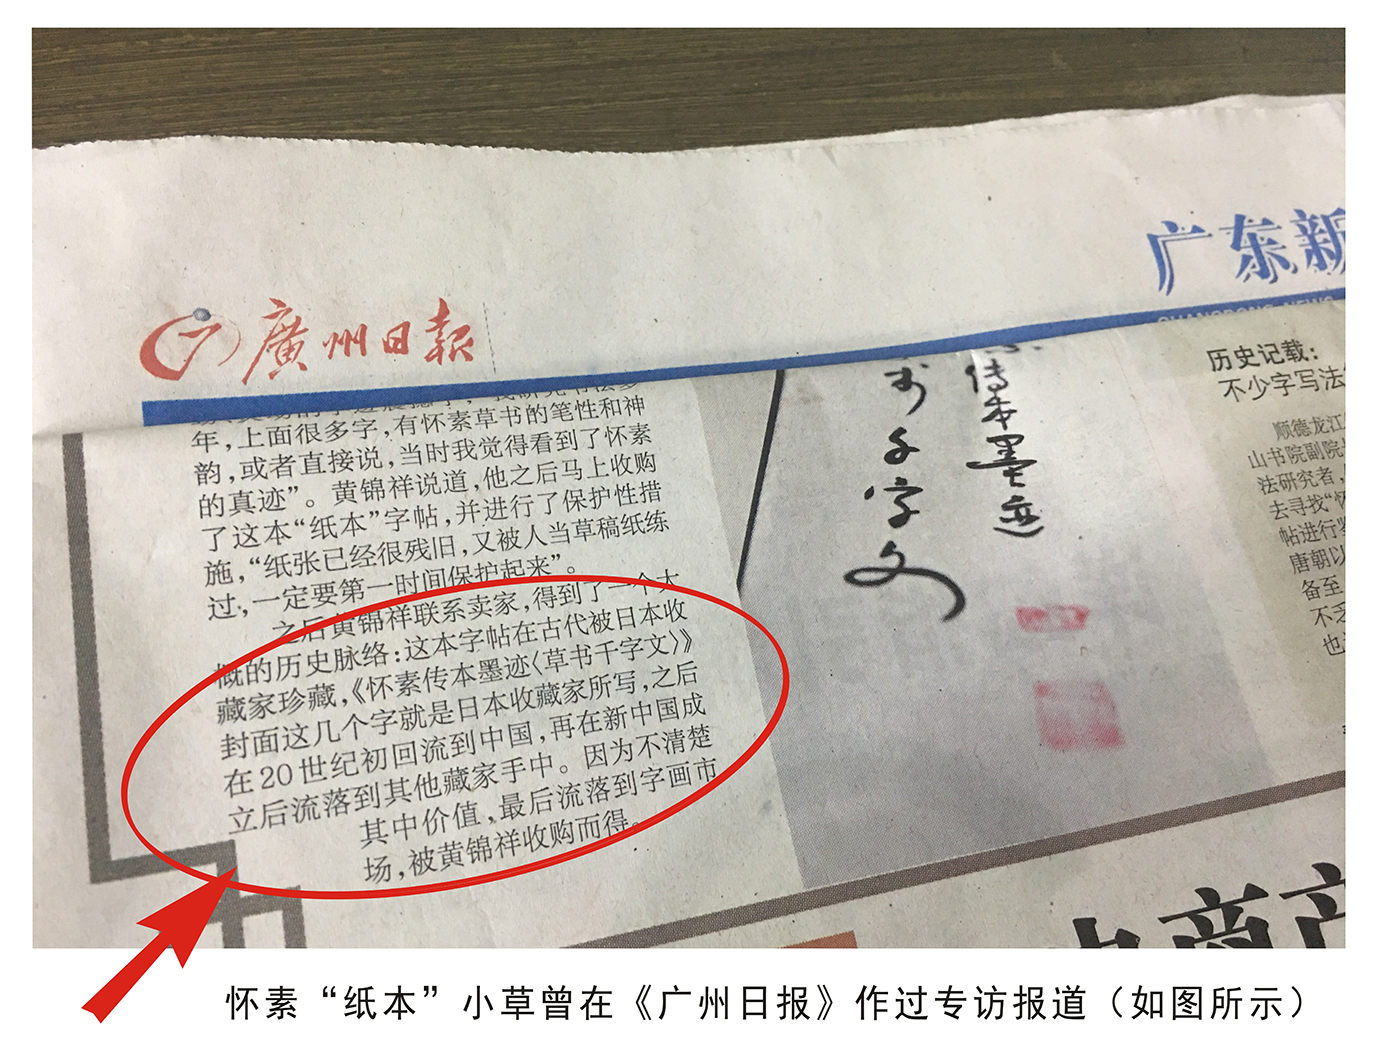 廣州日報
广东新
GUANGDONG NEWS
年,上面很多字,有怀素草书的笔性和神
韵,或者直接说,当时我觉得看到了怀素
的真迹”。黄锦祥说道,他之后马上收购
了这本“纸本”字帖,并进行了保护性措
施,“纸张已经很残旧,又被人当草稿纸练
过,一定要第一时间保护起来”。
之后黄锦祥联系卖家,得到了一个大
概的历史脉络:这本字帖在古代被日本收
藏家珍藏,《怀素传本墨迹〈草书千字文〉》
封面这几个字就是日本收藏家所写,之后
在20世纪初回流到中国,再在新中国成
立后流落到其他藏家手中。因为不清楚
其中价值,最后流落到字画市
场,被黄锦祥收购而得。
傳本墨迹
千字文
历史记载:
不少字写法
顺德龙江
山书院副院
法研究者,
去寻找“怀
帖进行
唐朝以
备至
不乏
也
商产
怀素“纸本”小草曾在《广州日报》作过专访报道(如图所示)